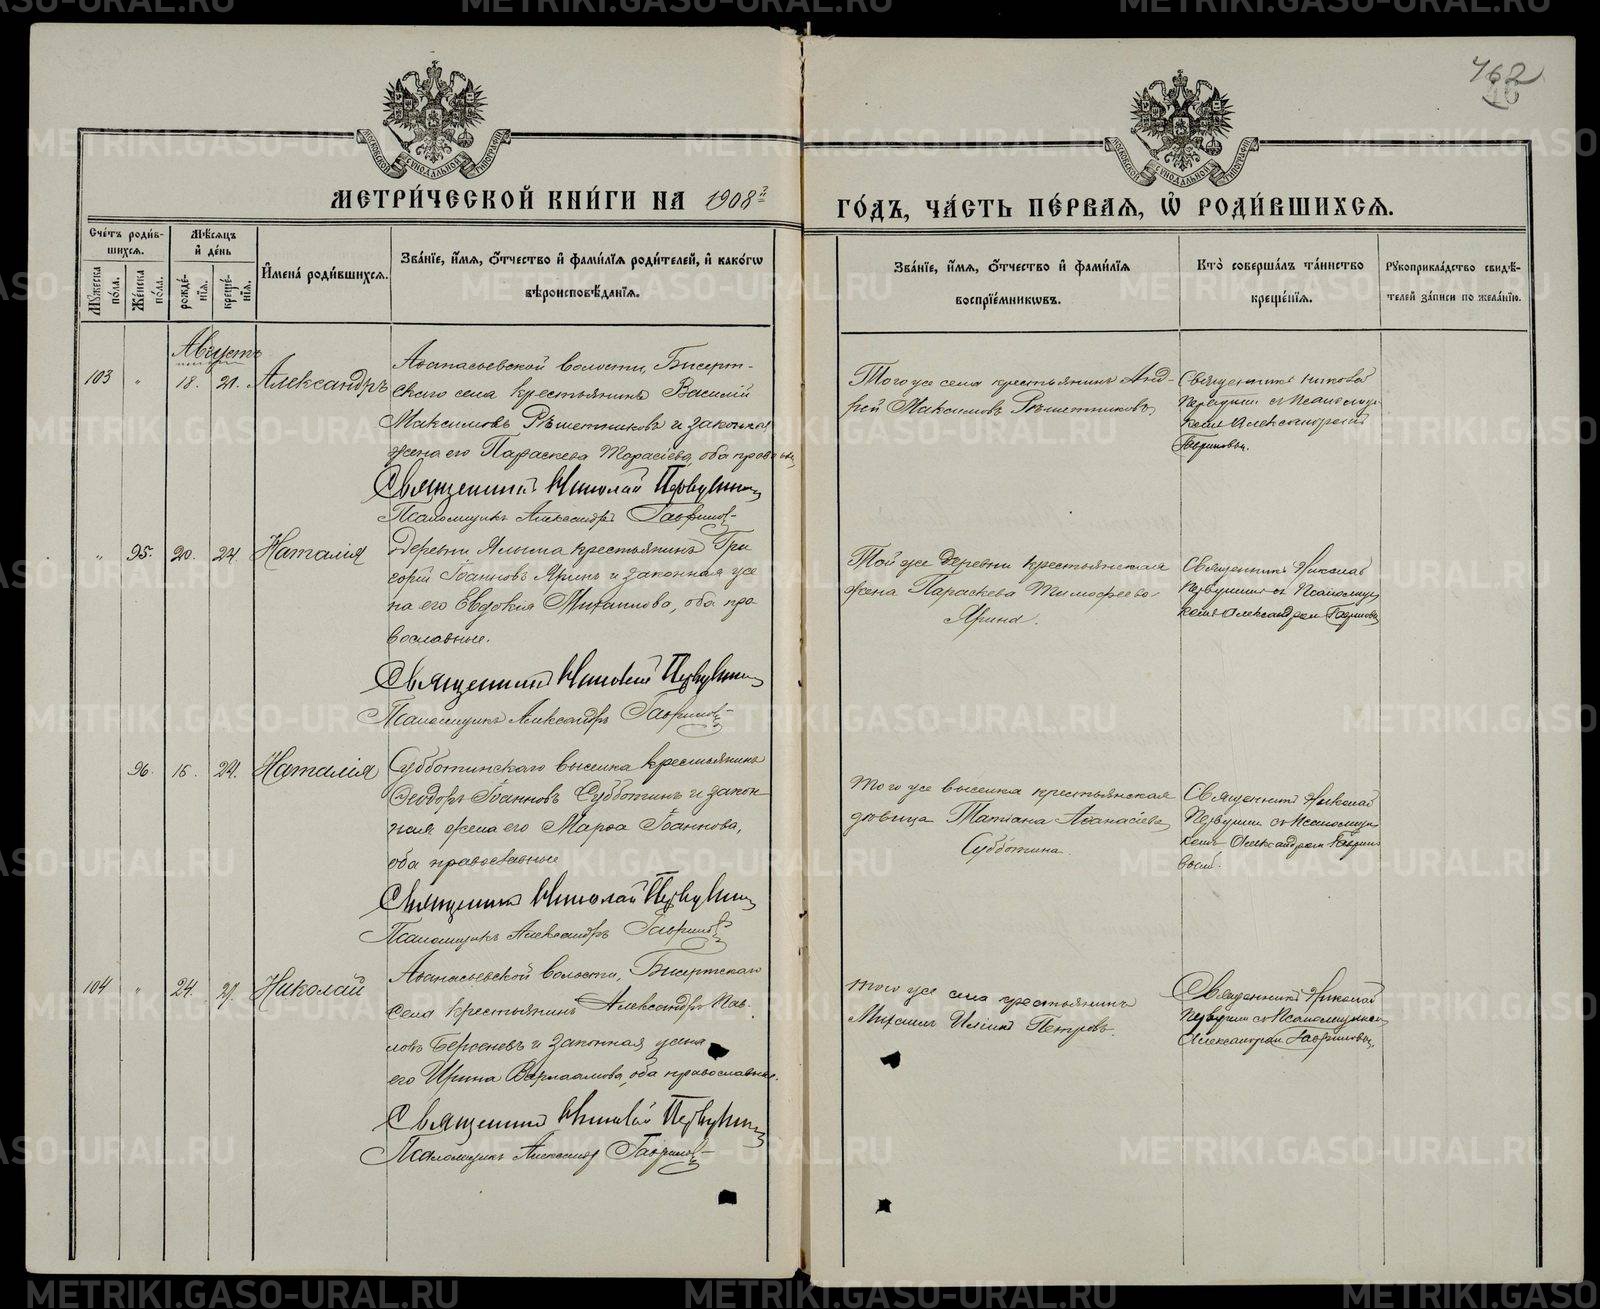 762
16
МЕТРИ́ЧЕСКОЙ КНИ́ГИ НА 1908й
ГО́ДЪ, ЧА́СТЬ ПЕ́РВАѦ, Ѡ҆ РОДИ́ВШИХСѦ.
МОСКОВСКОЙ СѴНОДАЛЬНОЙ ТИПОГРАФІИ
МОСКОВСКОЙ СѴНОДАЛЬНОЙ ТИПОГРАФІИ
Сче́тъ роди́в-
шихсѧ.
Мꙋ́жеска по́ла.
Же́нска по́ла.
Мѣ́сѧцъ
и҆ де́нь
рожде́-
нїѧ.
креще́-
нїѧ.
И҆мена̀ роди́вшихсѧ.
Зва́нїе, и҆́мѧ, ѻ҆́тчество и҆ фами́лїѧ роди́телей, и҆ како́гѡ
вѣроисповѣ́данїѧ.
Зва́нїе, и҆́мѧ, ѻ҆́тчество и҆ фами́лїѧ
воспрїе́мникѡвъ.
Кто̀ соверша́лъ та́инство
креще́нїѧ.
Рꙋкоприкла́дство свидѣ́-
телей за́писи по жела́нїю.
Августъ
103 " 18. 21. Александръ
Аѳанасьевской волости, Бисерт-
скаго села крестьянинъ Василій
Максимовъ Рѣшетниковъ и законная
жена его Параскева Тарасіева, оба правосл.
Священникъ Николай Первушинъ
Псаломщикъ Александръ Гавриловъ
Того же села крестьянинъ Анд-
рей Максимовъ Рѣшетниковъ
Священникъ Николай
Первушин съ Псаломщи-
комъ Александромъ
Гавриловым.
" 95. 20. 24. Наталія
Деревни Ялыма крестьянинъ Гри-
горій Іоанновъ Яринъ и законная же-
на его Евдокія Михаилова, оба пра-
вославные.
Священникъ Николай Первушинъ
Псаломщикъ Александръ Гавриловъ
Той же деревни крестьянская
жена Параскева Тимофеева
Ярина.
Священникъ Николай
Первушинъ съ Псаломщи-
комъ Александром Гавриловым
96. 16. 24. Наталія
Субботинскаго выселка крестьянинъ
Ѳеодоръ Іоанновъ Субботинъ и закон-
ная жена его Марѳа Іоаннова,
оба православные
Священникъ Николай Первушинъ
Псаломщикъ Александръ Гавриловъ
Того же выселка крестьянская
дѣвица Татіана Аѳанасіева
Субботина.
Священникъ Николай
Первушин съ Псаломщи-
комъ Александром Гаврил-
вым.
104 " 24. 27. Николай
Аѳанасьевской волости, Бисертскаго
села крестьянинъ Александръ Пав-
ловъ Берсеневъ и законная жена
его Ирина Варлаамова, оба православные.
Священникъ Николай Первушинъ
Псаломщикъ Александр Гавриловъ
Того же села крестьянинъ
Михаилъ Иліинъ Петровъ.
Священникъ Николай
Первушин съ Псаломщиком
Александром Гавриловым.
METRIKI.GASO-URAL.RU